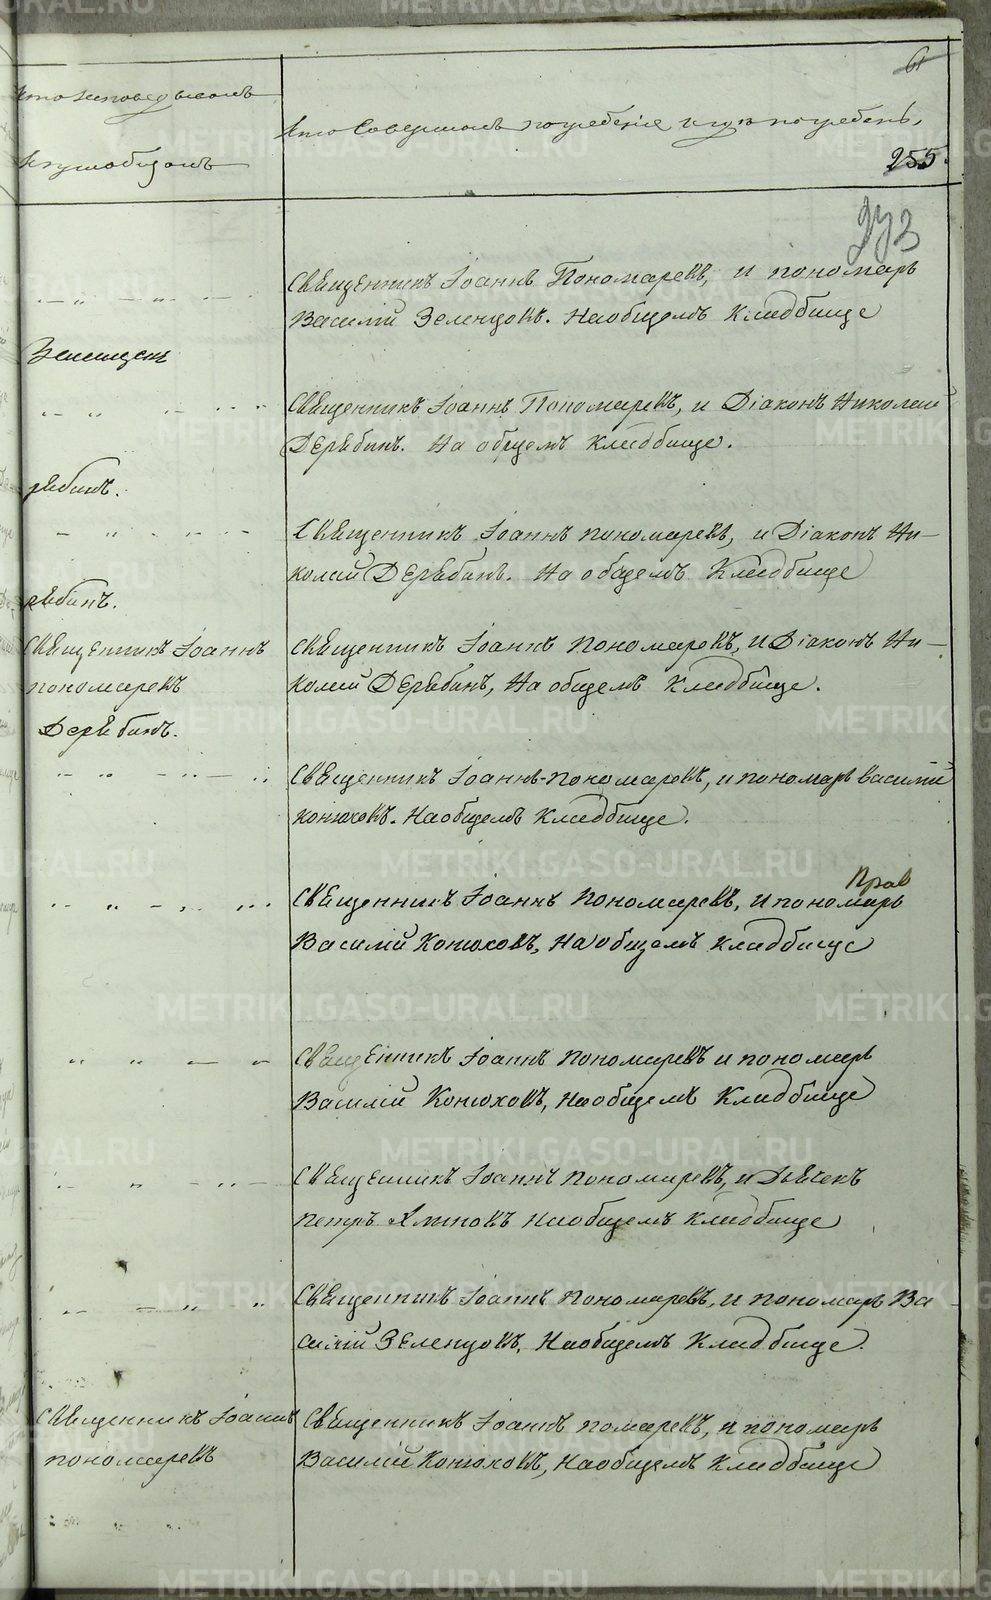 61
Кто исповедывалъ
и пріобщалъ
Кто совершалъ погребеніе и гдѣ погребенъ,
255.
273
Священникъ Іоаннъ Пономаревъ, и пономарь
Василій Зеленцовъ. На общемъ Кладбище
Священникъ Іоаннъ Пономаревъ, и Діаконъ Николай
Дерябинъ. На общемъ Кладбище.
рябинъ.
Священникъ Іоаннъ пономаревъ, и Діаконъ Ни-
колай Дерябинъ. На общемъ Кладбище
рябинъ.
Священникъ Іоаннъ
пономаревъ
Дерябинъ.
Священникъ Іоаннъ Пономаревъ, и Діаконъ Ни-
колай Дерябинъ, На общемъ Кладбище.
Священникъ Іоаннъ-пономаревъ, и пономарь василій
конюховъ. На общемъ Кладбище.
Священникъ Іоаннъ Пономаревъ, и пономарь
Василій Конюховъ, На общемъ кладбище
Священникъ Іоаннъ Пономаревъ и пономарь
Василій Конюховъ, На общемъ Кладбище
Священникъ Іоаннъ Пономаревъ, и Дьячекъ
Петръ На общемъ кладбище
Священникъ Іоаннъ Пономаревъ, и пономарь Ва-
силій Зеленцовъ, На общемъ Кладбище.
Священникъ Іоаннъ
пономаревъ
Священникъ Іоаннъ помаревъ, и пономарь
Василій Конюховъ, На общемъ Кладбище
METRIKI.GASO-URAL.RU